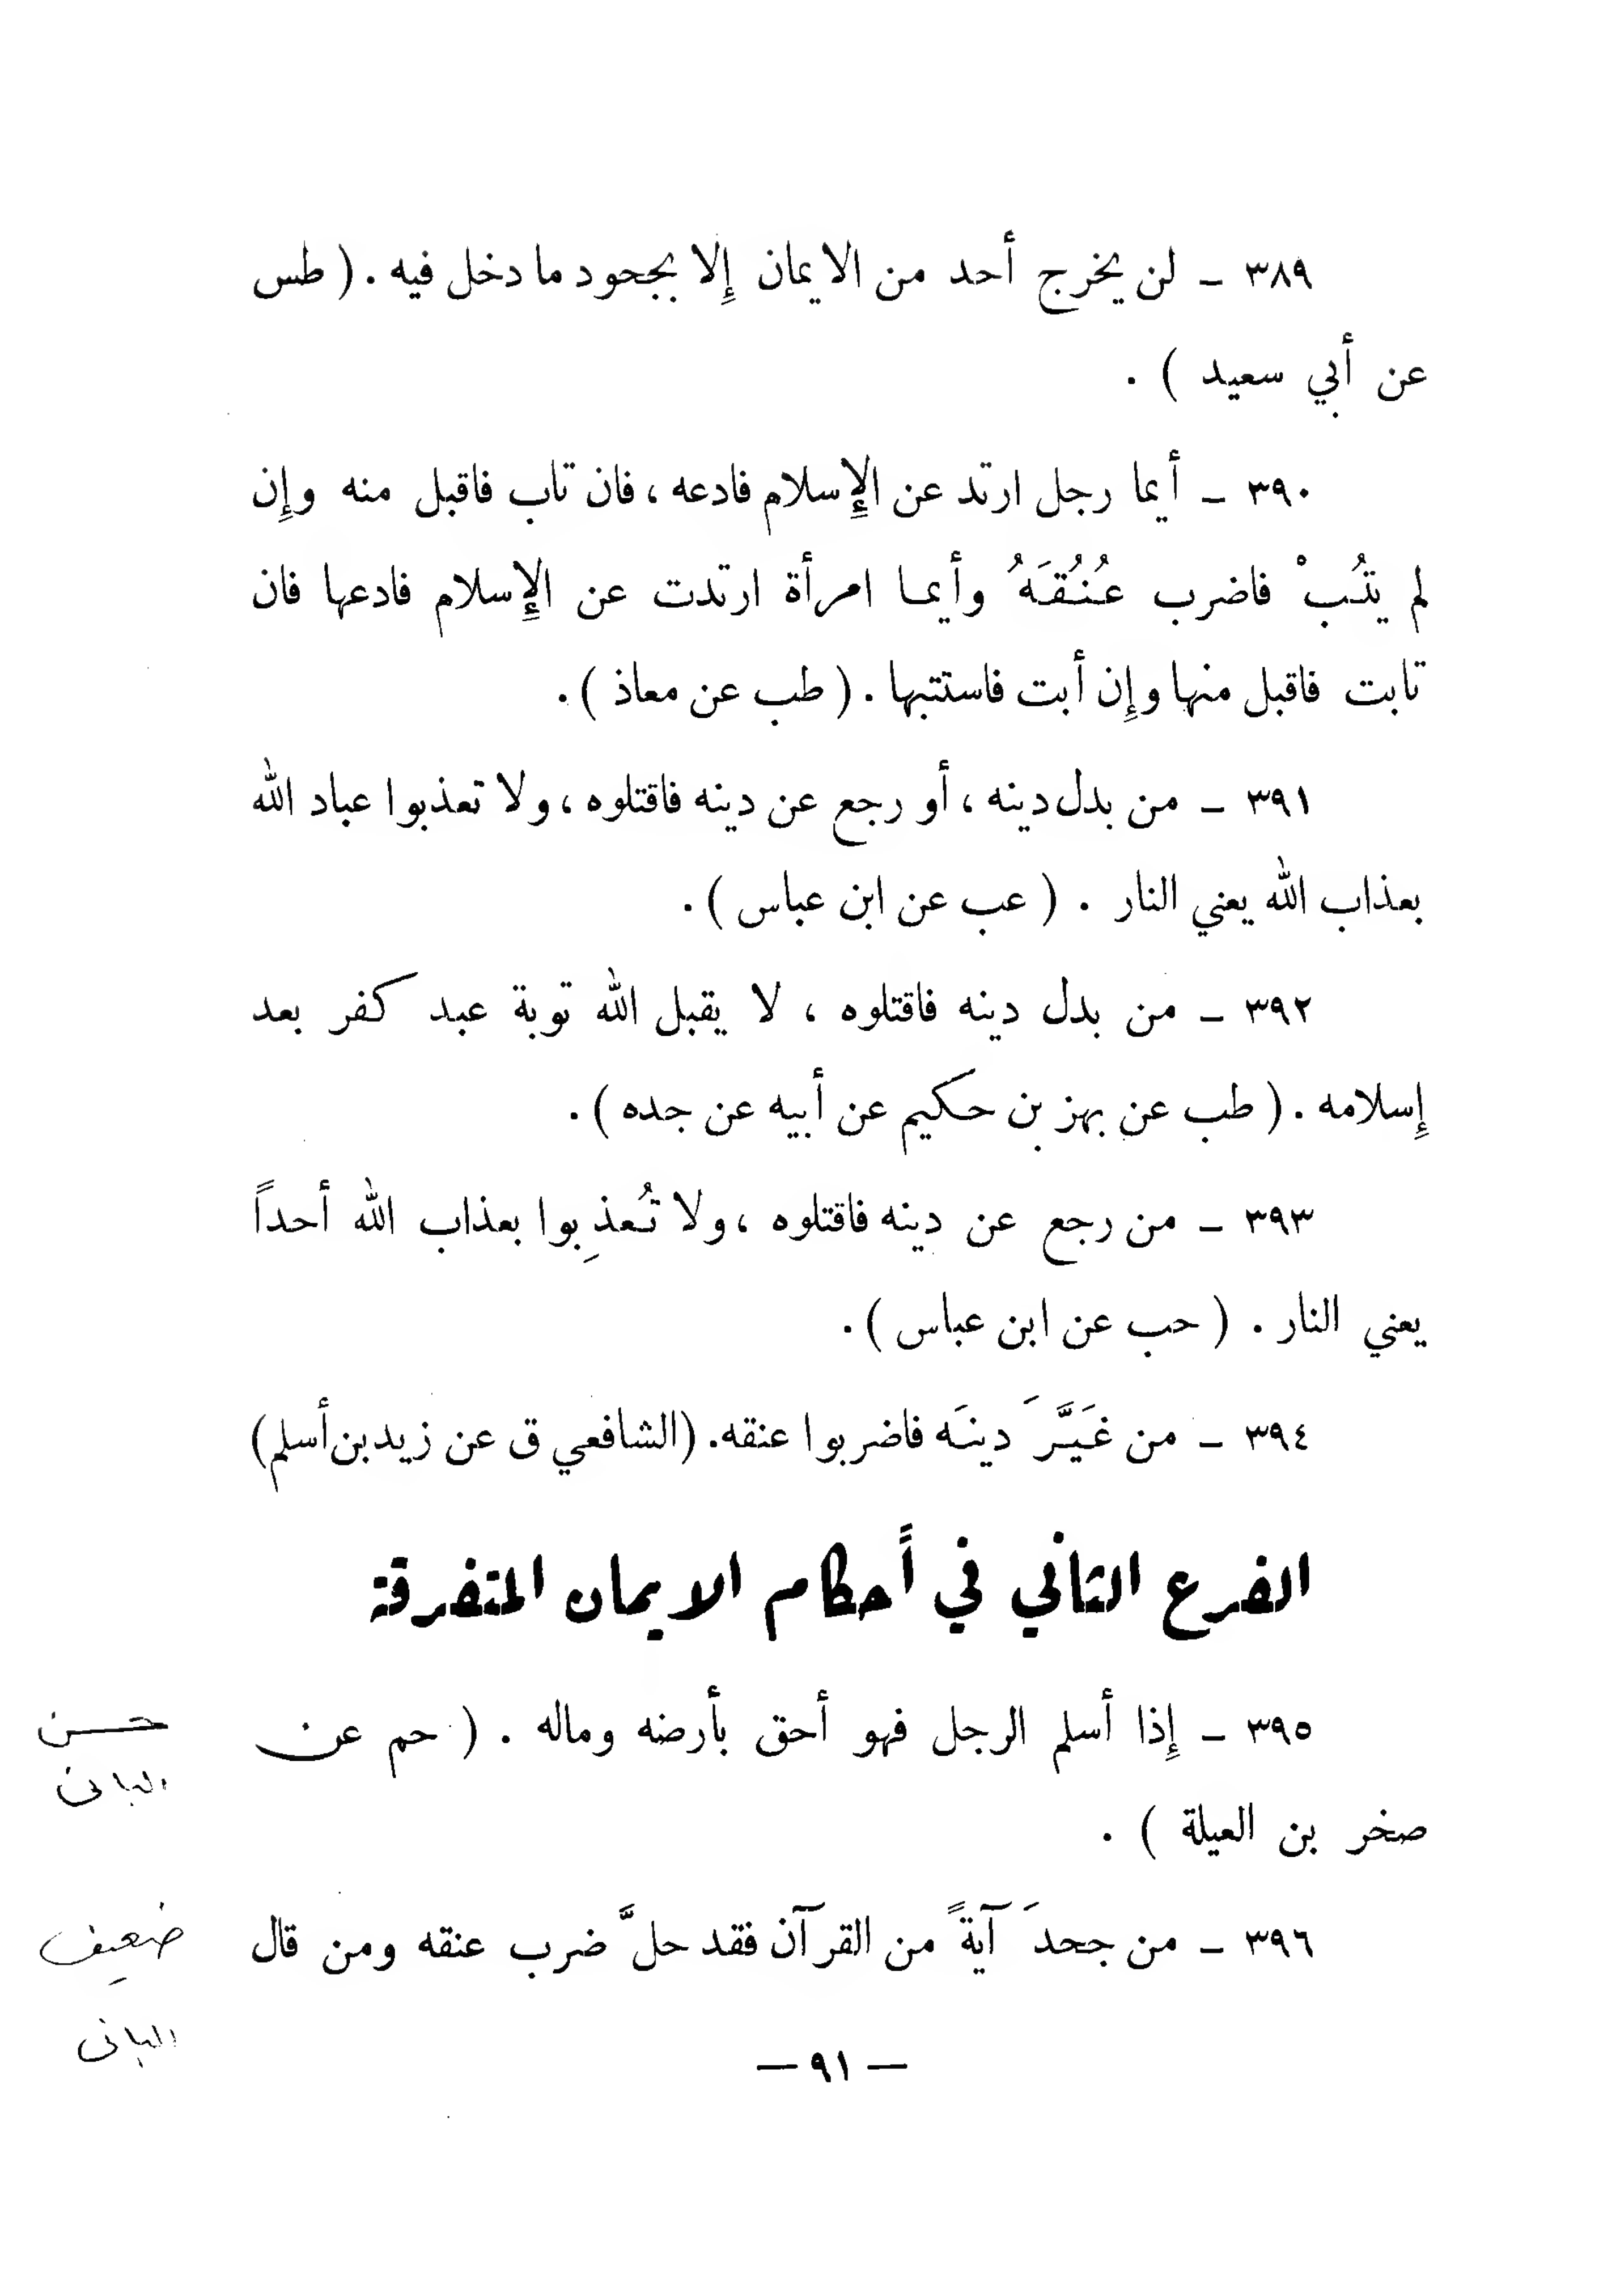 ٣٨٩ - لن يخرج أحد من الايمان إِلا بجحود ما دخل فيه . ( طس
عن أبي سعيد ) .
٣٩٠ - أيما رجل ارتد عن الإِسلام فادعه ، فان تاب فاقبل منه وإِن
لم يتُبْ فاضرب عُنُقَهُ وأيما امرأة ارتدت عن الإِسلام فادعها فان
تابت فاقبل منها وإِن أبت فاستتبها . ( طب عن معاذ ) .
٣٩١ - من بدل دينه ، أو رجع عن دينه فاقتلوه ، ولا تعذبوا عباد الله
بعذاب الله يعني النار . ( عب عن ابن عباس ) .
٣٩٢ - من بدل دينه فاقتلوه ، لا يقبل الله توبة عبد كفر بعد
إِسلامه . ( طب عن بهز بن حكيم عن أبيه عن جده ) .
٣٩٣ - من رجع عن دينه فاقتلوه ، ولا تُعذِبوا بعذاب الله أحداً
يعني النار . ( حب عن ابن عباس ) .
٣٩٤ - من غَيَّرَ دينَه فاضربوا عنقه. (الشافعي ق عن زيد بن أسلم)
الفرع الثاني في أحكام الايمان المتفرقة
٣٩٥ - إِذا أسلم الرجل فهو أحق بأرضه وماله . ( حم عن
حسن
البانى
صخر بن العيلة ) .
٣٩٦ - من جحدَ آيةً من القرآن فقد حلَّ ضرب عنقه ومن قال
ضعيف
البانى
— ٩١ —